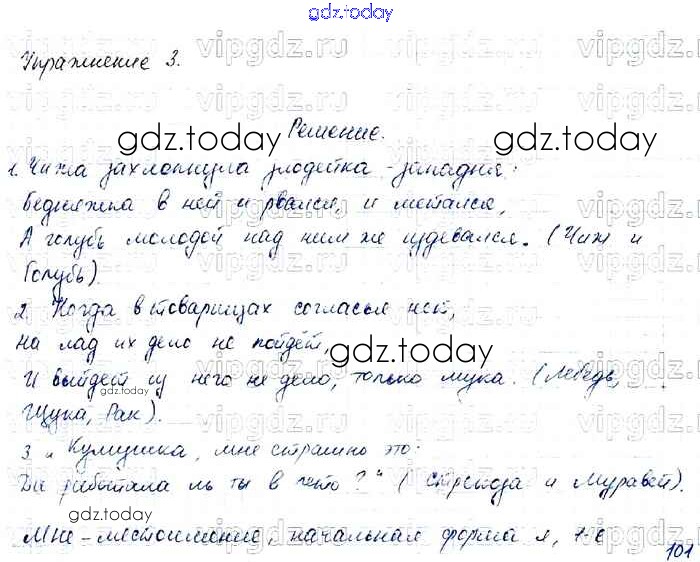 gdz.today
Упражнение 3.
Решение.
1. Чижа захлопнула злодейка-западня:
Бедняжка в ней и рвался, и метался,
А голубь молодой над ним же издевался. (Чиж и
Голубь).
2. Когда в товарищах согласья нет,
На лад их дело не пойдёт,
И выйдет из него не дело, только мука. (Лебедь,
Щука, Рак).
3 „Кумушка, мне странно это:
Да работала ль ты в лето?" (Стрекоза и Муравей).
Мне - местоимение, начальная форма я, 1-е
101